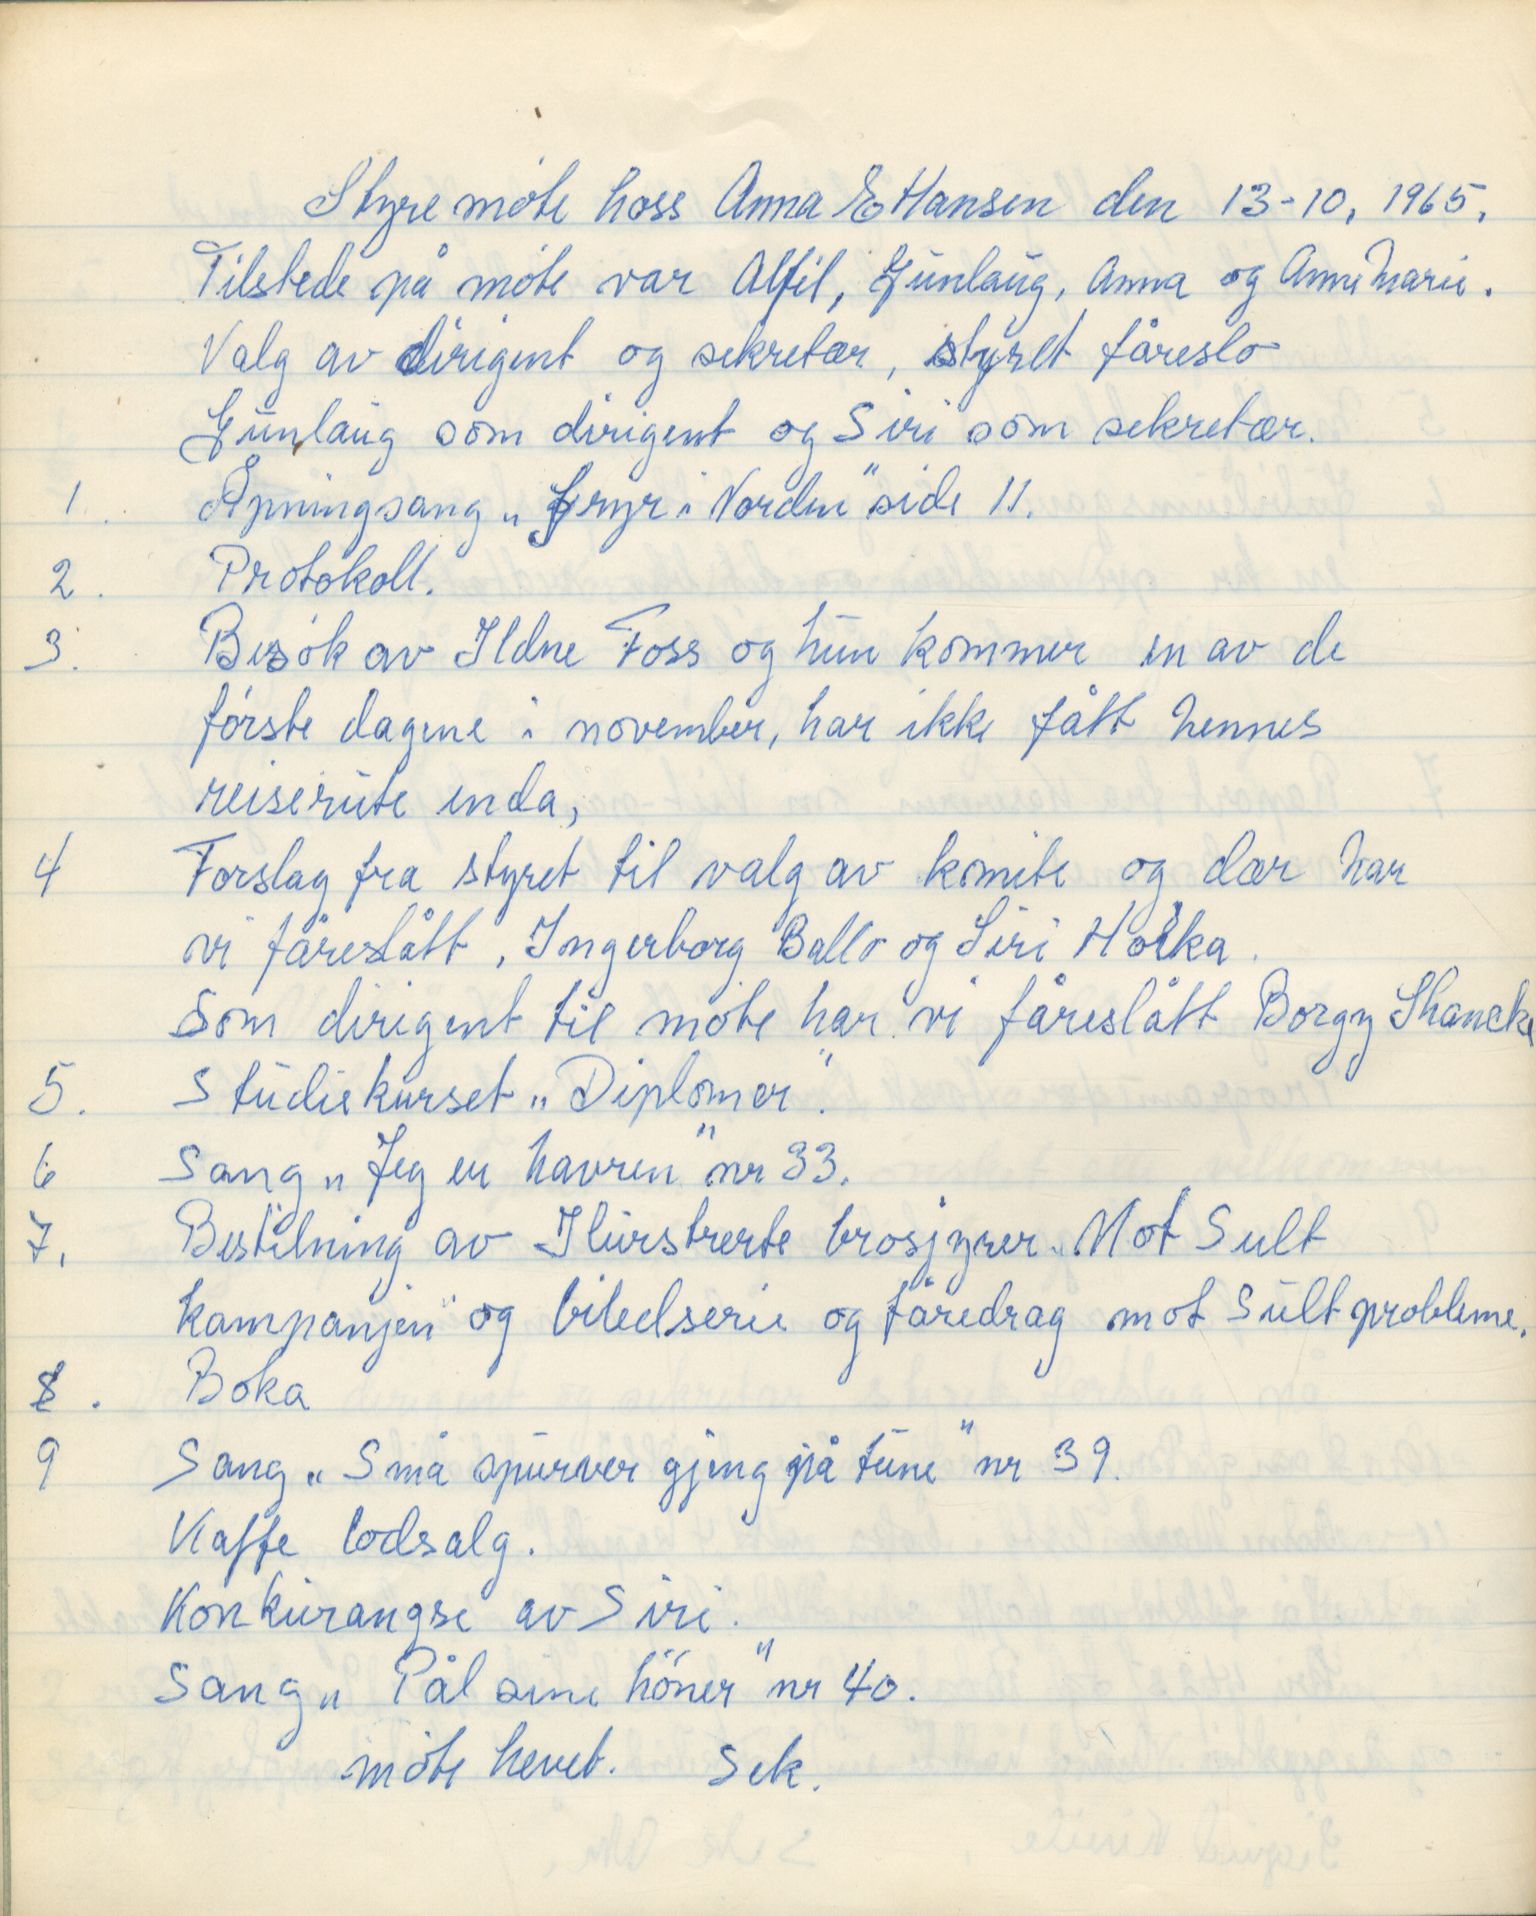 Styremöte hoss Anna E Hansen den 13-10, 1965,
Tilstede på möte var Alfil, Gunlaug, Anna og Anne Marie.
Valg av dirigent og sekretær, styret fåreslo
Gunlaug som dirigent og Siri som sekretær.
1. Åpningsang „Gryr i Norden" side 11.
2. Protokoll.
3. Besök av Ildne Foss og hun kommer en av de
förste dagene i november, har ikke fått hennes
reiserute enda,
4 Forslag fra styret til valg av komite og dær har
vi fåreslått, Ingerborg Ballo og Siri Hoika.
Som dirigent til möte har vi fåreslått Borgy Skancke
5. Studiekurset „Diplomer".
6 Sang „Jeg er havren" nr 33.
7. Bestilning av Ilurstrerte brosjyrer „Mot Sult
kampanjen" og biledserie og fåredrag mot Sultprobleme.
8. Boka
9 Sang „Små spurver gjeng på tune" nr 39.
Kaffe lodsalg.
Konkurangse av Siri.
Sang „Pål sine höner" nr 40.
möte hevet. Sek.